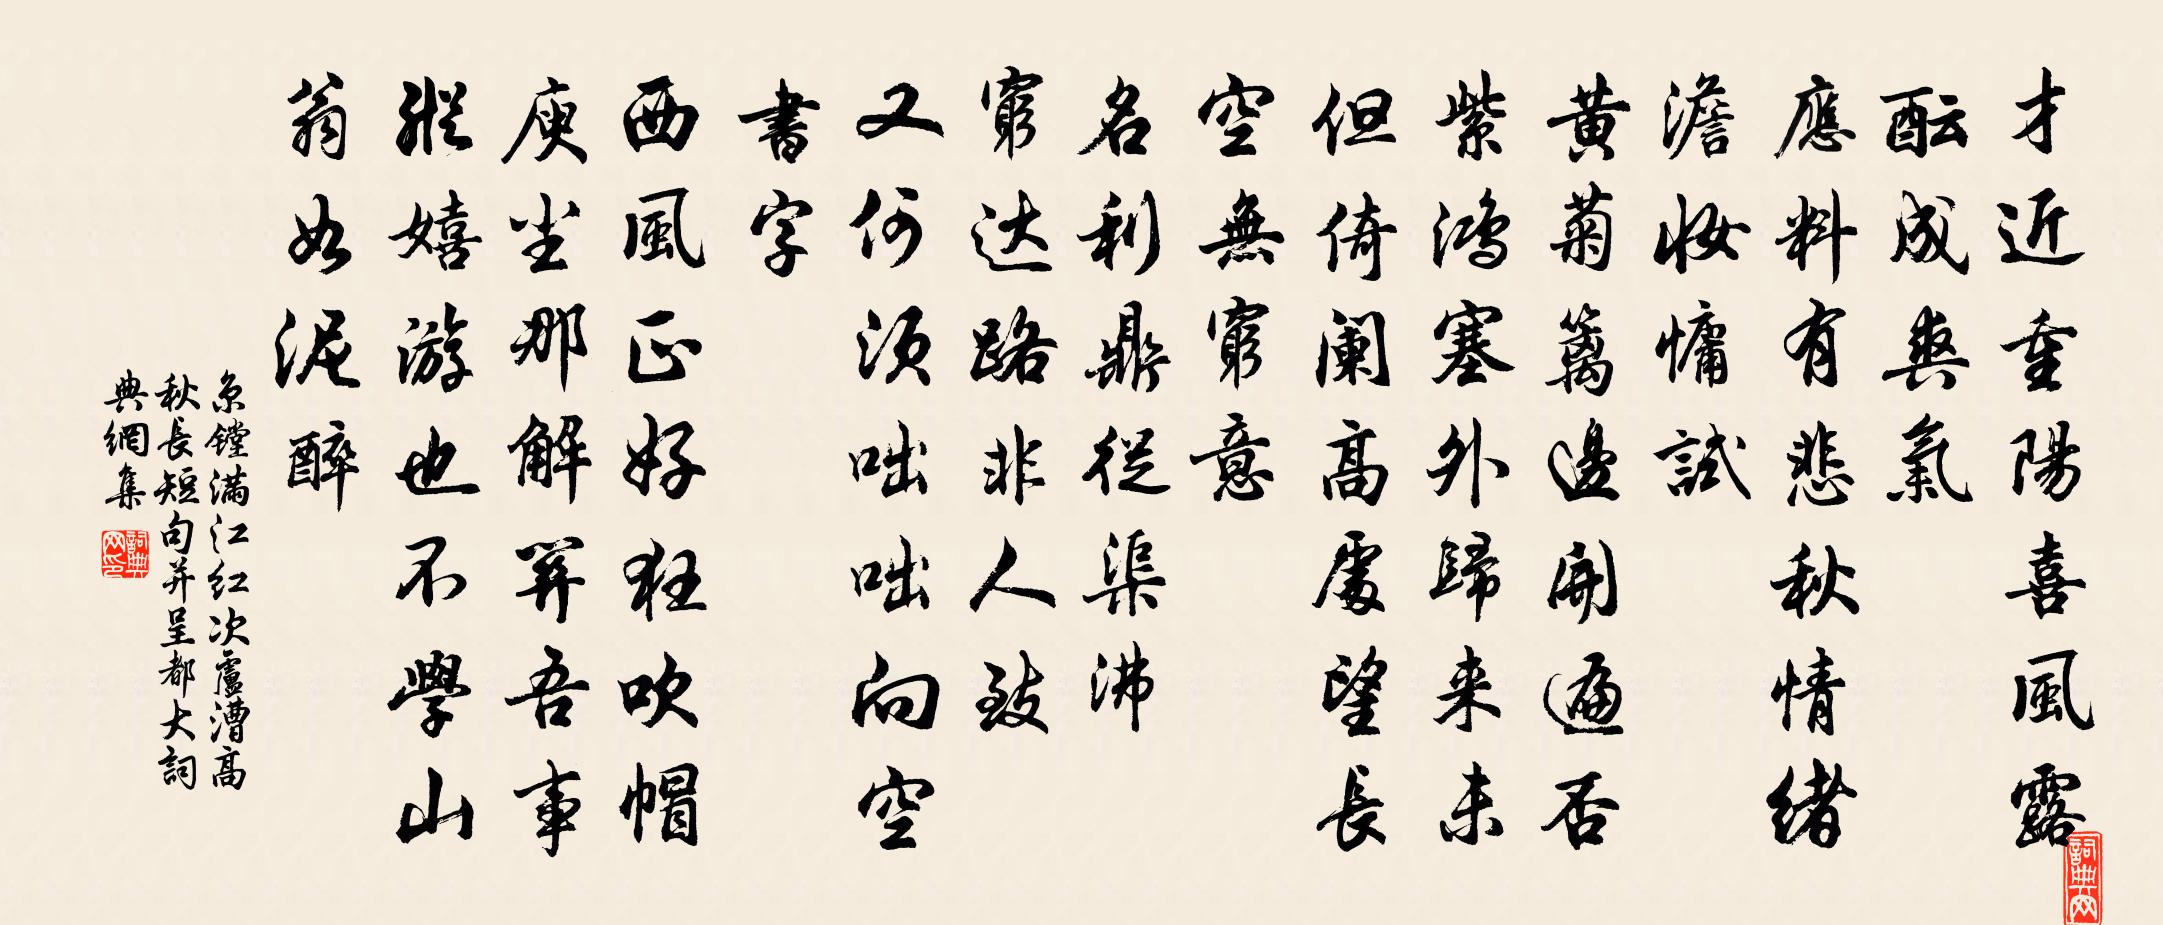 才近重陽喜風露
酝成爽氣
應料有悲秋情緒
澹妝慵試
黄菊篱邊開遍否
紫鴻塞外歸来未
但倚闌高處望長
空無窮意
名利鼎從渠沸
窮达路非人致
又何須咄咄咄向空
書字
西風正好狂吹帽
庾尘那解筭吾事
縱嬉游也不學山
翁如泥醉
京鏜满江红次盧漕高
秋長短句并呈都大詞
典網集
詞典网印
詞典网